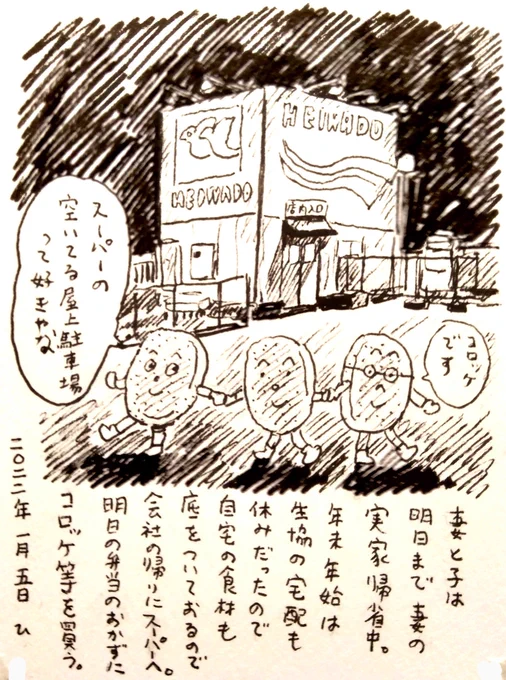 HEIWADO
HEIWADO
店内入口
スーパーの
空いてる屋上駐車場
って好きやな
コロッケ
です
妻と子は
明日まで妻の
実家帰省中。
年末年始は
生協の宅配も
休みだったので
自宅の食材も
底をついておるので
会社の帰りにスーパーへ。
明日の弁当のおかずに
コロッケ等を買う。
二〇二二年 一月 五日 ひ